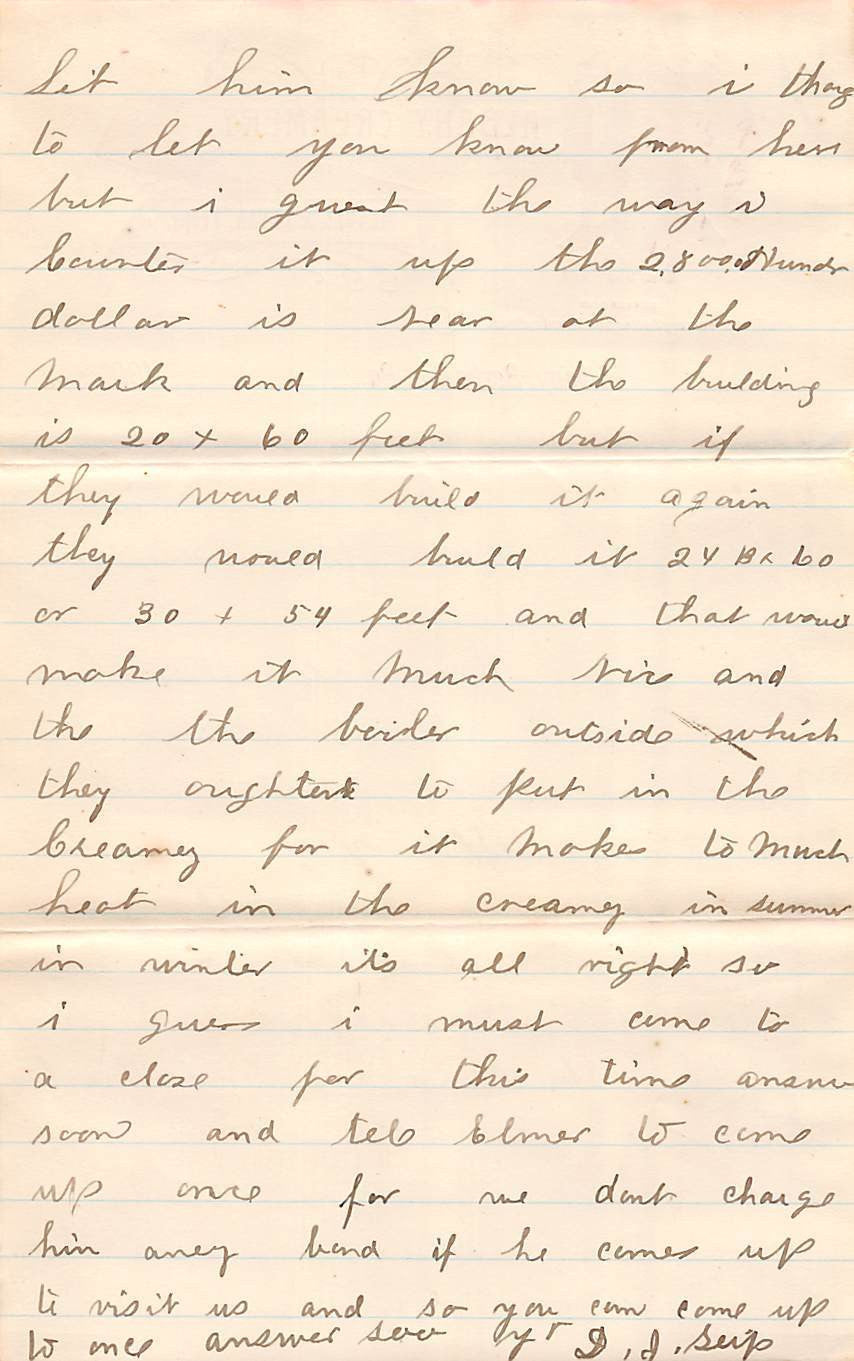 Let him know so i thoug
to let you know from here
but i guest the way i
counted it up the 2,800.00 Hundr
dollar is near at the
mark and then the building
is 20 x 60 feet but if
they would build it again
they would build it 24 By 60
or 30 + 54 feet and that would
make it Much Nice and
the the boiler outside which
they oughter to put in the
Creamey for it Makes to Much
heat in the creamey in summer
in winter its all right so
i guess i must come to
a close for this time answe
soon and tell Elmer to come
up once for we dont charge
him aney bond if he comes up
to visit us and so you can come up
to once answer soo yr D. J. Seip